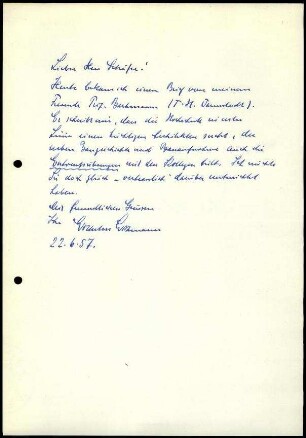 Lieber Herr Schäfer!
Heute bekam ich einen Brief von meinem
Freunde Prof. Beckmann (T.H. Darmstadt).
Er schreibt mir, dass die Hochschule in erster
Linie einen tüchtigen Architekten sucht, der
neben Baugeschichte und Bauaufnahme auch die
Entwurfsübungen mit den Kollegen hält. Ich möchte
Sie doch gleich – vertraulich – darüber unterrichtet
haben.
Mit freundlichen Grüssen
Ihr
22.6.57.